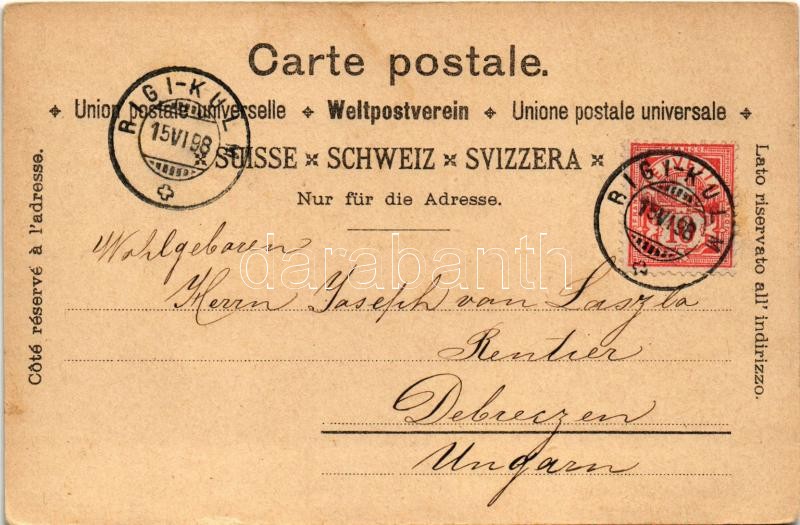 Carte postale.
Union postale universelle ✦ Weltpostverein ✦ Unione postale universale
SUISSE × SCHWEIZ × SVIZZERA
Nur für die Adresse.
RIGI-KULM
15VI98
RIGI-KULM
15VI98
10
Côté réservé à l'adresse.
Lato riservato all' indirizzo.
Wohlgeboren
Herrn Joseph von Laszlo
Rentier
Debreczen
Ungarn
darabanth